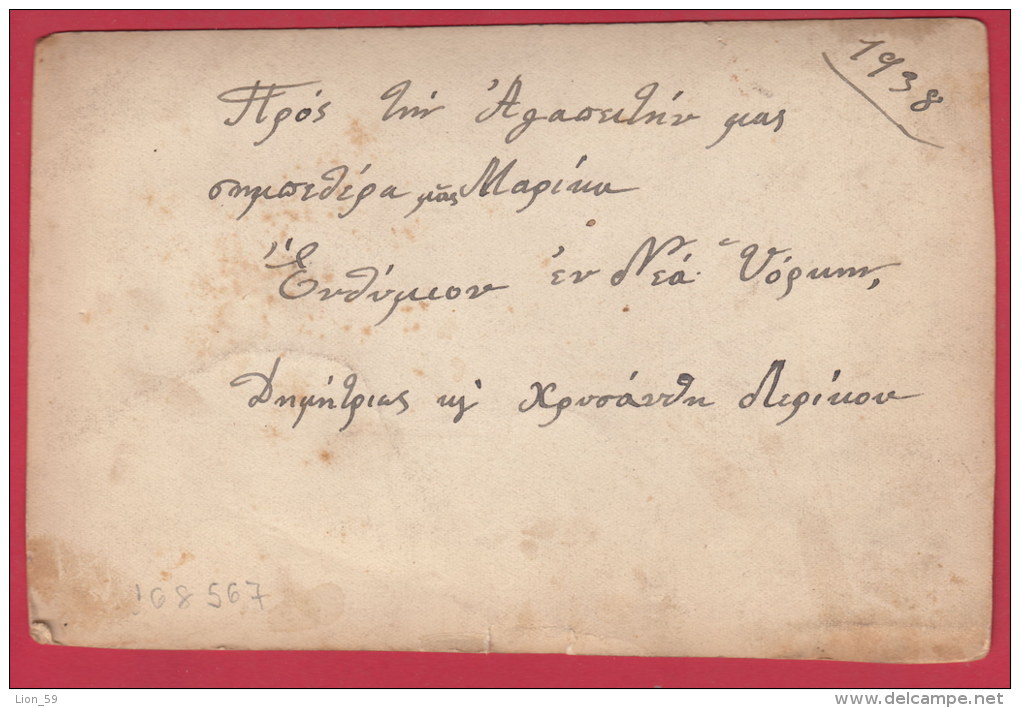 1938
Πρός τήν Ἀγαπειτήν μας
σημπεθέρα μᾶς Μαρίκα
Ἐνθύμιον ἐν Νεά Ὑόρκην,
Δημήτριας κὶ Χρυσάνθη Λερίκου
168567
Lion_59
www.delcampe.net